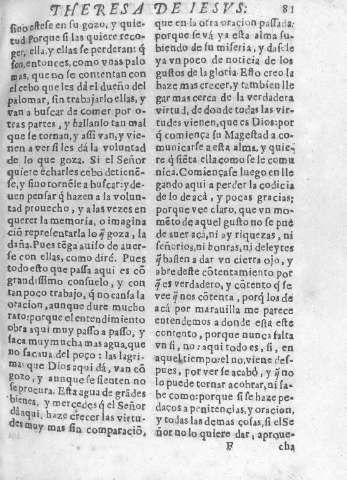 THERESA DE IESVS. 81
sino estese en su gozo, y quie-
tud. Porque si las quiere reco-
ger, ella, y ellas se perderan: q̃
son, entonces, como vnas palo
mas, que no se contentan con
el cebo que les dà el dueño del
palomar, sin trabajarlo ellas, y
van a buscar de comer por o-
tras partes, y hallanlo tan mal
que se tornan, y assi van, y vie-
nen a ver si les dà la voluntad
de lo que goza. Si el Señor
quiere echarles cebo detienē-
se, y sino tornãle a buscar: y de-
uen pensar q̃ hazen a la volun-
tad prouecho, y a las vezes en
querer la memoria, o imagina
ciō representarla lo q̃ goza, la
daña. Pues tēga auiso de auer-
se con ellas, como dirè. Pues
todo esto que passa aqui es cō
grandissimo consuelo, y con
tan poco trabajo, q̃ no cansa la
oracion, aunque dure mucho
rato: porque el entendimiento
obra aqui muy passo a passo, y
saca muy mucha mas agua, que
no sacaua del poço: las lagri-
mas que Dios aqui dà, van cō
gozo, y aunque se sienten no
se procura. Esta agua de grãdes
bienes, y mercedes q̃ el Señor
dà aqui, haze crecer las virtu-
des muy mas sin comparaciō,
que en la otra oracion passada:
porque se và ya esta alma su-
biendo de su miseria, y dasele
ya vn poco de noticia de los
gustos de la gloria. Esto creo la
haze mas crecer, y tambien lle
gar mas cerca de la verdadera
virtud, de donde todas las vir-
tudes vienen, que es Dios: por
q̃ comiença su Magestad a co-
municarse a esta alma, y quie-
re q̃ siēta ella como se le comu
nica. Comiençase luego en lle
gando aqui a perder la codicia
de lo de acà, y pocas gracias;
porque vee claro, que vn mo-
mēto de aquel gusto no se pue
de auer acà, ni ay riquezas, ni
señorios, ni honras, ni deleytes
q̃ basten a dar vn cierra ojo, y
abre deste cōtentamiento por
q̃ es verdadero, y cōtento q̃ se
vee q̃ nos cōtenta, porq̃ los de
acà por marauilla me parece
entendemos a donde està este
contento, porque nunca falta
vn si, no: aqui todo es, si, en
aquel tiempo: el no, viene des-
pues, por ver se acabò, y q̃ no
lo puede tornar a cobrar, ni sa-
be como: porque si se haze pe-
daços a penitencias, y oracion,
y todas las demas cosas, si el Se
ñor no lo quiere dar, aproue-
F cha